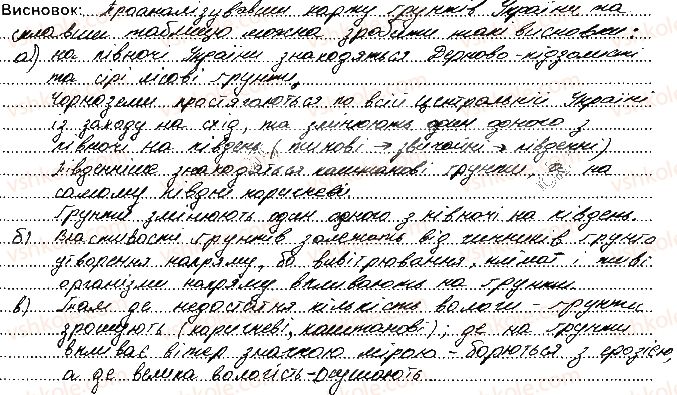 Висновок: Проаналізувавши карту ґрунтів України та
склавши таблицю можна зробити такі висновки:
а) на півночі України знаходяться Дерново-підзолисті
та сірі лісові ґрунти,
Чорноземи простягаються по всій Центральній Україні
із заходу на схід, та змінюють один одного з
півночі на південь (типові → звичайні → південні)
Південніше знаходяться каштанові ґрунти, а на
самому півдні коричневі.
Ґрунти змінюють один одного з півночі на південь.
б) Властивості ґрунтів залежать від чинників ґрунто
утворення напряму, бо вивітрювання, клімат і живі
організми напряму впливають на ґрунти.
в) Там де недостатня кількість вологи - ґрунти
зрошують (коричневі, каштанові); де на ґрунти
впливає вітер значною мірою - борються з ерозією,
а де велика вологість - осушають